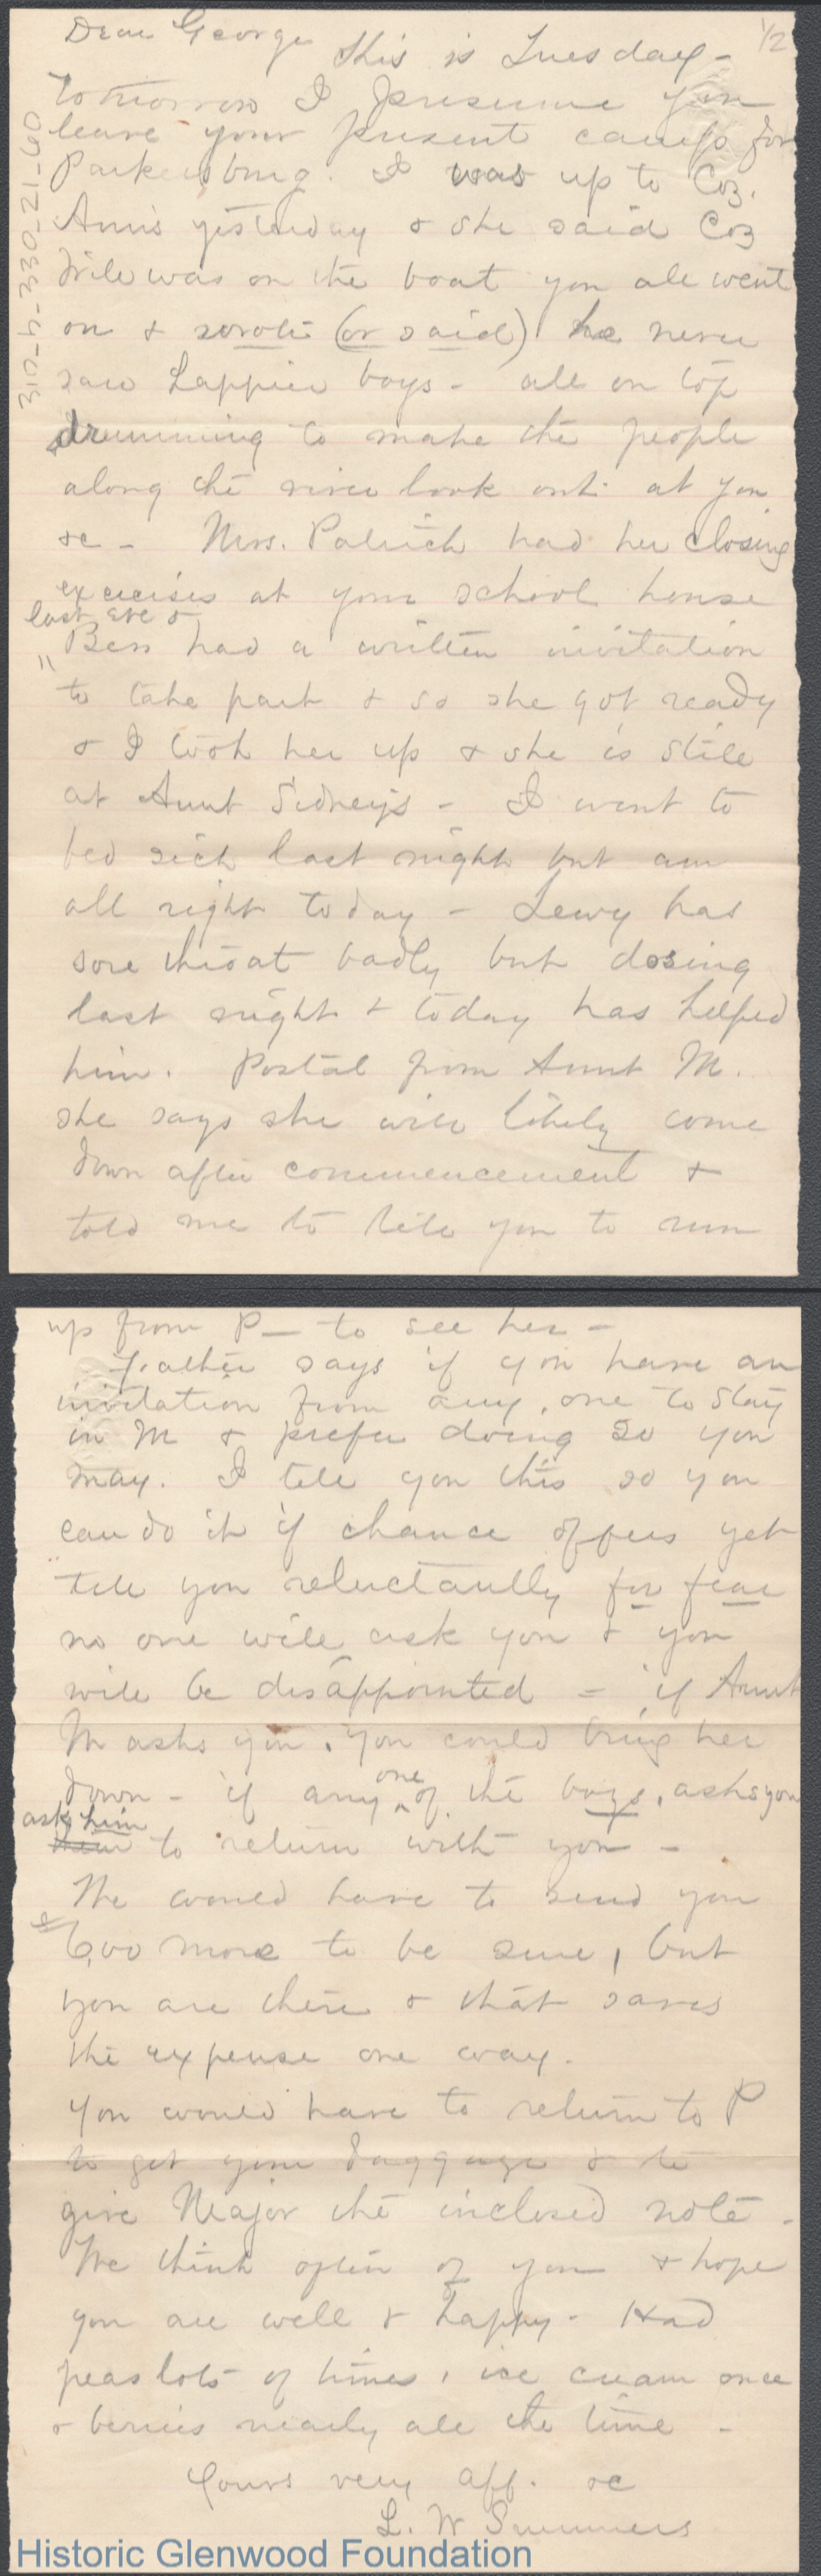 Dear George
This is Tuesday - 1/2
tomorrow I presume you
leave your present camp for
Parkersburg. I was up to Coz.
Ann's yesterday & she said Coz
Will was on the boat you all went
on & wrote (or said) he never
saw happier boys - all on top
drumming to make the people
along the river look out at you
&c - Mrs. Patrick had her closing
exercises at your school house
last eve &
" Bess had a written invitation
to take part & so she got ready
& I took her up & she is still
at Aunt Sidney's - I went to
bed sick last night but am
all right today - Lewy has
sore throat badly but dosing
last night & today has helped
him. Postal from Aunt M.
she says she will likely come
down after commencement &
told me to tell you to run
310-h-330-21-60
up from P- to see her -
Father says if you have an
invitation from any one to stay
in M & prefer doing so you
may. I tell you this so you
can do it if chance offers yet
tell you reluctantly for fear
no one will ask you & you
will be disappointed - if Aunt
M asks you, you could bring her
down - if any one of the boys, asks you
ask him
to return with you -
We would have to send you
$6.00 more to be sure, but
you are there & that saves
the expense one way.
You would have to return to P
to get your baggage & to
give Major the inclosed note -
We think often of you & hope
you are well & happy - Had
peas lots of times, ice cream once
& berries nearly all the time -
Yours very aff. &c
L. W Summers
Historic Glenwood Foundation